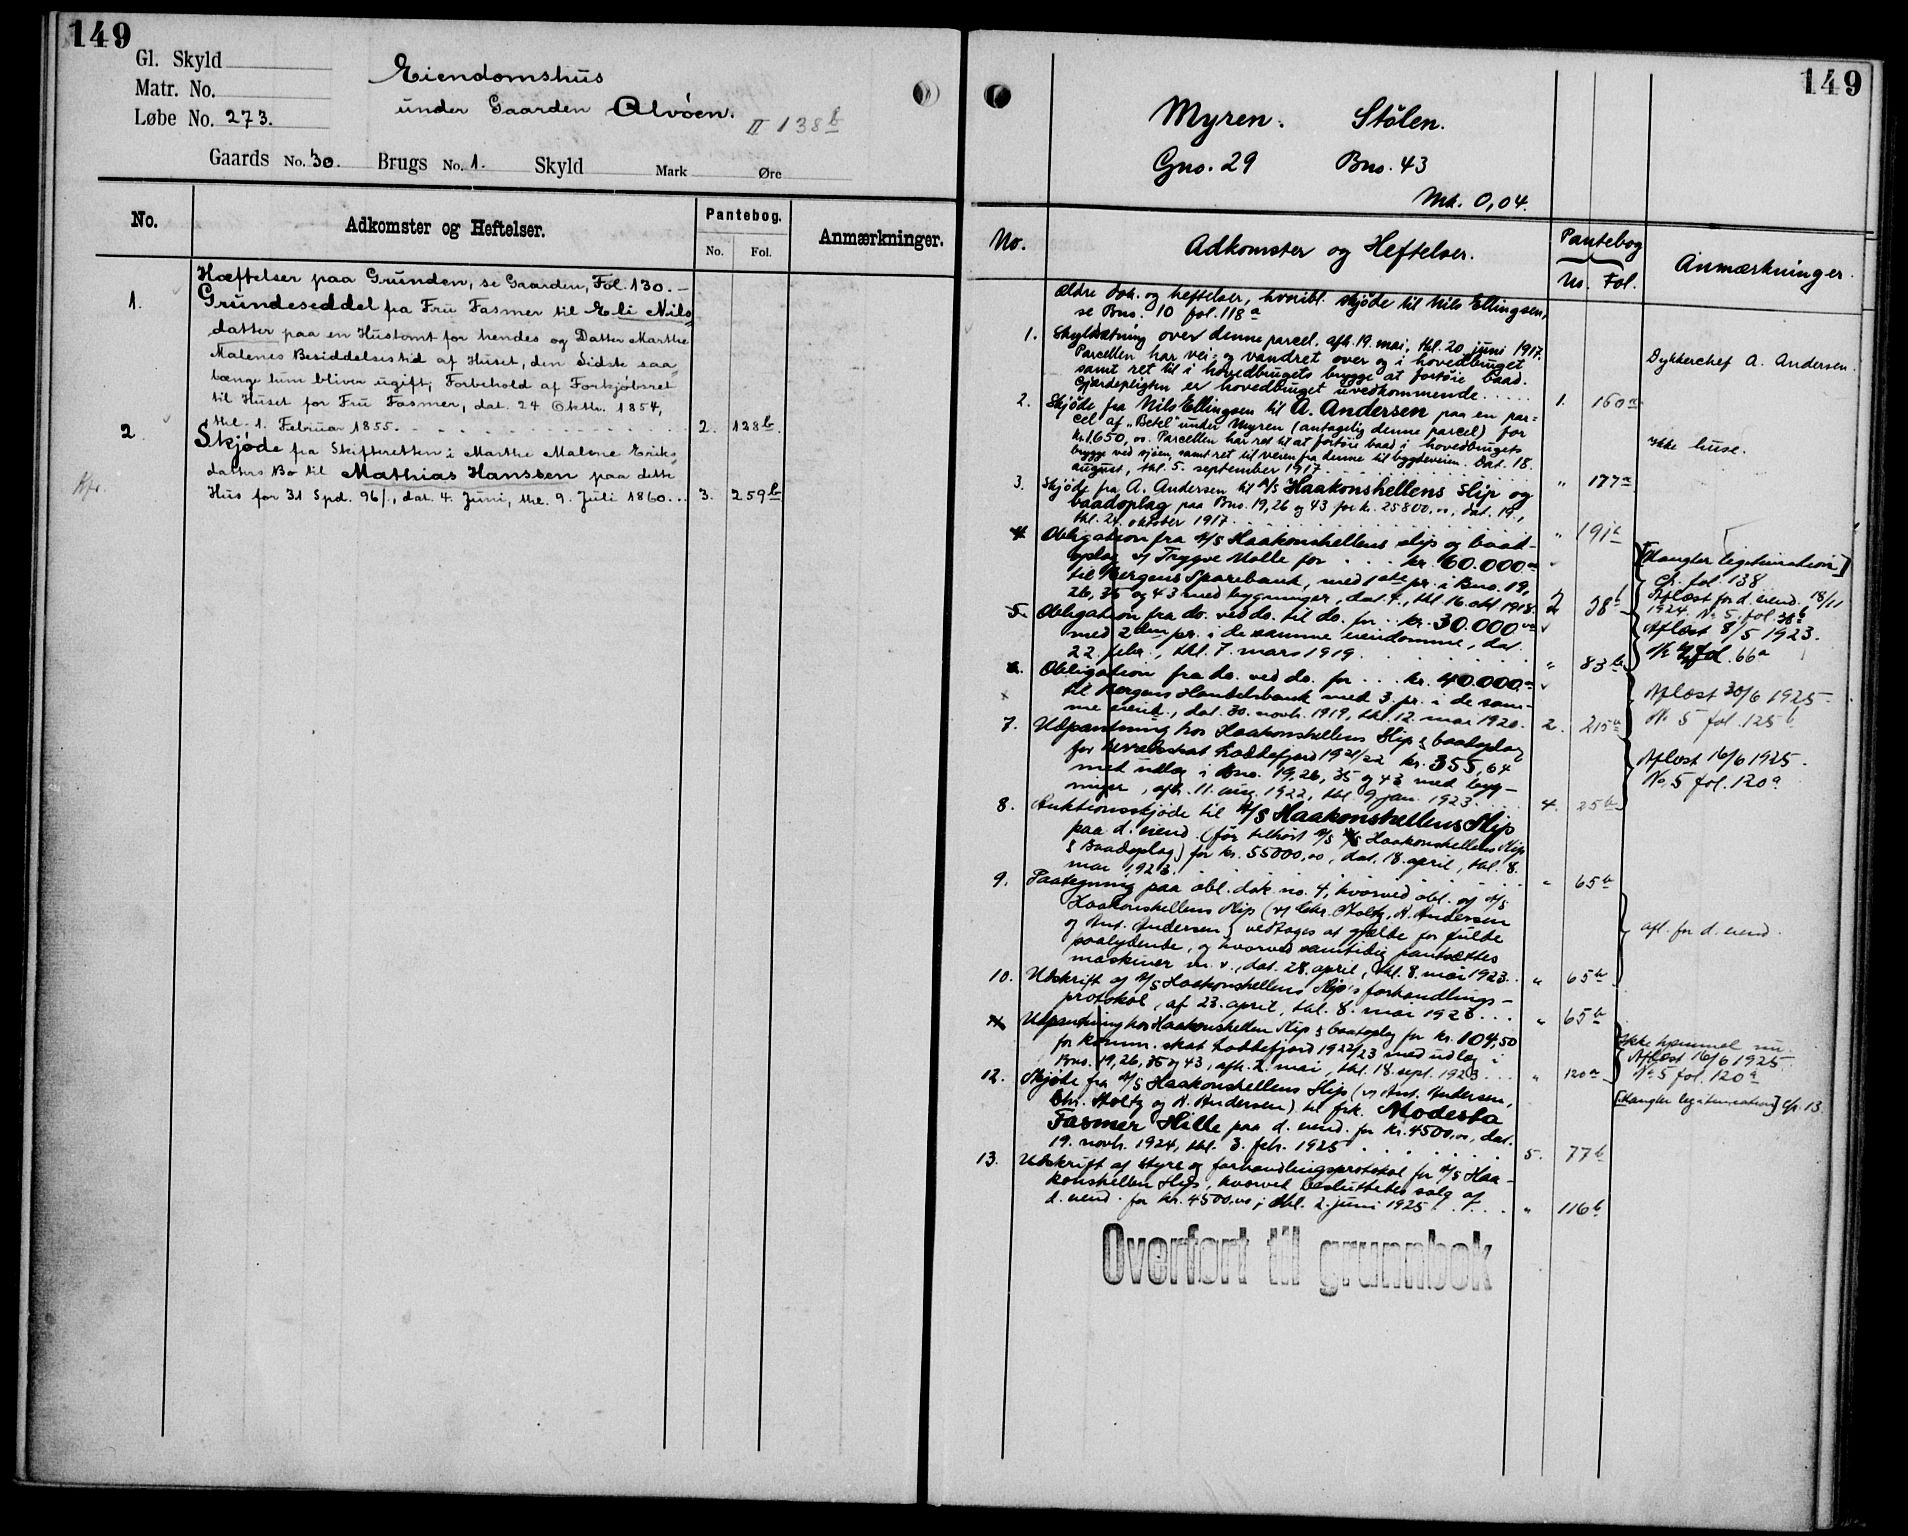 149
Gl. Skyld
Matr. No.
Løbe No. 273.
Eiendomshus
under Gaarden Alvöen.
II 138 b
Gaards No. 30. Brugs No. 1. Skyld Mark Øre
No. Adkomster og Heftelser. Pantebog. Anmærkninger.
No. Fol.
Hæftelser paa Grunden, se Gaarden, Fol. 130. –
1. Grundeseddel fra Fru Fasmer til Eli Nils-
datter paa en Hustomt for hendes og Datter Marthe
Malenes Besiddelsestid af Huset, den Sidste saa
længe hun bliver ugift; Forbehold af Forkjøbsret
til Huset for Fru Fasmer, dat. 24 Oktbr. 1854,
thl. 1. Februar 1855. 2. 128 b
2. Skjøde fra Skifteretten i Marthe Malene Eriks-
datters Bo til Mathias Hanssen paa dette
Hus for 31 Spd. 96 /, dat. 4. Juni, thl. 9. Juli 1860... 3. 259 b
149
Myren. Stölen.
Gno. 29 Bno. 43
Mk. 0,04.
No. Adkomster og Heftelser. Pantebog Anmærkninger.
No. Fol.
Ældre dok. og heftelser, hvoribl. skjöde til Nils Ellingsen,
se Bno. 10 fol. 118 a
1. Skyldsætning over denne parcel, afh. 19. mai, thl. 20. juni 1917.
Parcellen har vei- og vandret over og i hovedbruget
samt ret til i hovedbrugets brygge at fortöie baad.
Gjerdepligten er hovedbruget uvedkommende..... 1. 160 a
Dykkerchef A. Andersen.
2. Skjöde fra Nils Ellingsen til A. Andersen paa en par-
cel af "Betel" under Myren (antagelig denne parcel) for
kr. 1650,00. Parcellen har ret til at fortöie baad i hovedbrugets
brygge ved sjöen, samt ret til veien fra denne til bygdeveien. Dat. 18.
august, thl. 5. september 1917 " 177 a
ikke huse.
3. Skjöde fra A. Andersen til A/S Haakonshellens slip og
baadoplag paa Bno. 19, 26 og 43 for kr. 25800,00, dat. 19.,
thl. 24. oktober 1917 " 191 b
4. Obligation fra A/S Haakonshellens slip og baad-
oplag v/ Trygve Molle for ... kr. 60.000 00
til Bergens Sparebank, med 1ste pr. i Bno. 19,
26, 35 og 43 med bygninger, dat. 4., thl. 16. okt 1918. 2 38 b
[Mangler legitimation]
Cfr. fol 138
Afløst for d. eiend. 18/11
1924. No. 5. fol. 38 b
5. Obligation fra do. ved do. til do. for .. kr. 30.000 00
med 2den pr. i de samme eiendomme, dat.
22. febr., thl. 7. mars 1919. " 83 b
Afløst 8/5 1923.
No 4 fol. 66 a
6. Obligation fra do. ved do. for ... kr. 40.000 00
til Bergens Handelsbank med 3. pr. i de sam-
me eiend., dat. 30. novb. 1919, thl. 12. mai 1920. 2. 215 a
Afløst 30/6 1925
No. 5 fol. 125 b
7. Udpantning hos Haakonshellens Slip & baadoplag
for herredsskat Laksefjord 1921/22 kr. 355,64
med udlæg i Bno. 19, 26, 35 og 43 med byg-
ninger, afh. 11. aug. 1922, thl. 9 jan. 1923. 4. 25 b
Afløst 16/6 1925.
No. 5 fol. 120 a
8. Auktionsskjøde til A/S Haakonshellens Slip
paa d. eiend. (før tilhørt A/S Haakonshellens Slip
& Baadoplag) for kr. 55000,00, dat. 18. april, thl. 8.
mai 1923. " 65 b
9. Paategning paa obl. dok. no. 4, hvorved obl. og A/S
Haakonshellens Slip (v/ Chr. Stoltz, N. Andersen
og Ant. Andersen) vedtages at gjælde for fulde
paalydende, og hvorved samtidig pantsættes
maskiner m. v., dat. 28. april, thl. 8. mai 1923.. " 65 b
afl. for d. eiend.
10. Utskrift af A/S Haakonshellens Slip's forhandlings-
protokol, af 23. april, thl. 8. mai 1923... " 65 b
11. Udpantning hos Haakonshellen Slip & baatoplag for kr. 104,50
for komm. skat Laksefjord 1922/23 med udlæg i
Bno. 19, 26, 35 og 43, afh. 2. mai, thl. 18. sept. 1923... " 120 a
Ikke hjemmel nu.
Afløst 16/6 1925
No. 5 fol. 120 a
12. Skjøde fra A/S Haakonshellens Slip (v/ Ant. Andersen,
Chr. Stoltz og N. Andersen) til frk. Modesta
Fasmer Hille paa d. eiend. for kr. 4500,00, dat.
19. novb. 1924, thl. 3. febr. 1925 5. 77 b
[Mangler legitimation] cfr. 13
13. Utskrift af styre og forhandlingsprotokol for A/S Haa-
konshellen Slip, hvorved besluttedes salg af
d. eiend. for kr. 4500,00; thl. 2. juni 1925. " 116 b
Overført til grunnbok